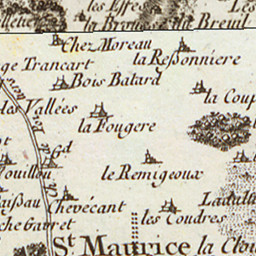 les Effes
la Breuil
Chez Moreau
la Ressonniere
ge Trancart
Bois Batard
des Vallées
la Coup
la Fougere
Gd
Vouillou
le Remigeoux
aißau
Chevécant
les Coudres
che Garret
St. Maurice
la Clou